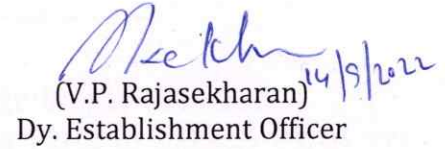 14/9/2022
(V.P. Rajasekharan)
Dy. Establishment Officer